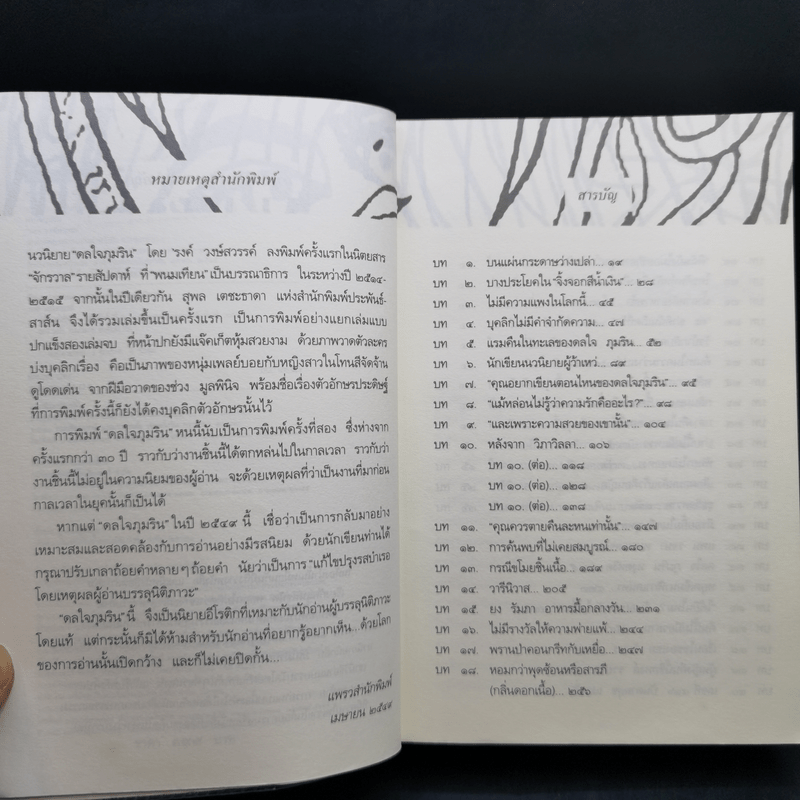 หมายเหตุสำนักพิมพ์
นวนิยาย “ดลใจภุมริน” โดย ’รงค์ วงษ์สวรรค์ ลงพิมพ์ครั้งแรกในนิตยสาร
“จักรวาล” รายสัปดาห์ ที่ “พนมเทียน” เป็นบรรณาธิการ ในระหว่างปี ๒๕๑๔-
๒๕๑๕ จากนั้นในปีเดียวกัน สุพล เตชะธาดา แห่งสำนักพิมพ์ประพันธ์-
สาส์น จึงได้รวมเล่มขึ้นเป็นครั้งแรก เป็นการพิมพ์อย่างแยกเล่มแบบ
ปกแข็งสองเล่มจบ ที่หน้าปกยังมีแจ๊คเก็ตหุ้มสวยงาม ด้วยภาพวาดตัวละคร
บ่งบุคลิกเรื่อง คือเป็นภาพของหนุ่มเพลย์บอยกับหญิงสาวในโทนสีจัดจ้าน
ดูโดดเด่น จากฝีมือวาดของช่วง มูลพินิจ พร้อมชื่อเรื่องตัวอักษรประดิษฐ์
ที่การพิมพ์ครั้งนี้ก็ยังได้คงบุคลิกตัวอักษรนั้นไว้
การพิมพ์ “ดลใจภุมริน” หนนี้นับเป็นการพิมพ์ครั้งที่สอง ซึ่งห่างจาก
ครั้งแรกกว่า ๓๐ ปี ราวกับว่างานชิ้นนี้ได้ตกหล่นไปในกาลเวลา ราวกับว่า
งานชิ้นนี้ไม่อยู่ในความนิยมของผู้อ่าน จะด้วยเหตุผลที่ว่าเป็นงานที่มาก่อน
กาลเวลาในยุคนั้นก็เป็นได้
หากแต่ “ดลใจภุมริน” ในปี ๒๕๔๙ นี้ เชื่อว่าเป็นการกลับมาอย่าง
เหมาะสมและสอดคล้องกับการอ่านอย่างมีรสนิยม ด้วยนักเขียนท่านได้
กรุณาปรับเกลาถ้อยคำหลาย ๆ ถ้อยคำ นัยว่าเป็นการ “แก้ไขปรุงรสบำเรอ
โดยเหตุผลผู้อ่านบรรลุนิติภาวะ”
“ดลใจภุมริน” นี้ จึงเป็นนิยายอีโรติกที่เหมาะกับนักอ่านผู้บรรลุนิติภาวะ
โดยแท้ แต่กระนั้นก็มิได้ห้ามสำหรับนักอ่านที่อยากรู้อยากเห็น...ด้วยโลก
ของการอ่านนั้นเปิดกว้าง และก็ไม่เคยปิดกั้น...
แพรวสำนักพิมพ์
เมษายน ๒๕๔๙
สารบัญ
บท ๑. บนแผ่นกระดาษว่างเปล่า... ๑๙
บท ๒. บางประโยคใน “จิ้งจอกสีน้ำเงิน”... ๒๘
บท ๓. ไม่มีความแพงในโลกนี้... ๔๕
บท ๔. บุคลิกไม่มีคำจำกัดความ... ๔๗
บท ๕. แรมคืนในทะเลของดลใจ ภุมริน... ๕๒
บท ๖. นักเขียนนวนิยายผู้ว้าเหว่... ๘๙
บท ๗. “คุณอยากเขียนตอนไหนของดลใจภุมริน”... ๙๕
บท ๘. “แม้หล่อนไม่รู้ว่าความรักคืออะไร?”... ๙๘
บท ๙. “และเพราะความสวยของเขานั้น”... ๑๐๔
บท ๑๐. หลังจาก วิภาวิลลา... ๑๐๖
บท ๑๐. (ต่อ)... ๑๑๘
บท ๑๐. (ต่อ)... ๑๒๘
บท ๑๐. (ต่อ)... ๑๓๘
บท ๑๑. “คุณควรตายคืนละหนเท่านั้น”... ๑๔๗
บท ๑๒. การค้นพบที่ไม่เคยสมบูรณ์... ๑๘๐
บท ๑๓. กรณีขโมยชิ้นเนื้อ... ๑๘๙
บท ๑๔. วารีนิวาส... ๒๐๕
บท ๑๕. ยง รัมภา อาหารมื้อกลางวัน... ๒๓๑
บท ๑๖. ไม่มีรางวัลให้ความพ่ายแพ้... ๒๔๔
บท ๑๗. พรานป่าคอนกรีทกับเหยื่อ... ๒๔๗
บท ๑๘. หอมกว่าพุดซ้อนหรือสารภี
(กลิ่นดอกเนื้อ)... ๒๕๖